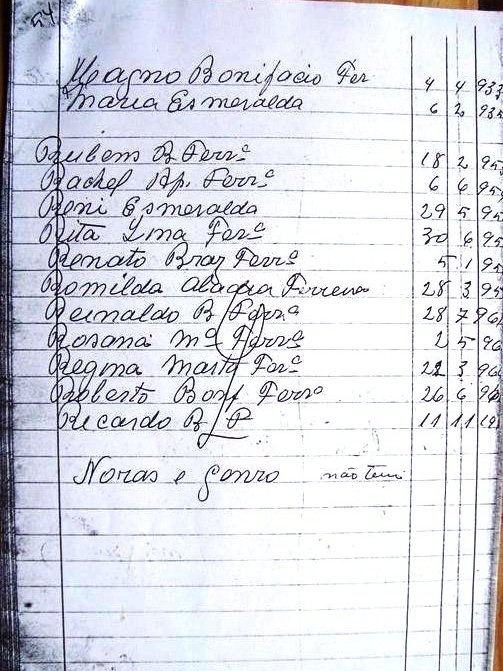 54
Magno Bonifacio Fer 4 4 933
Maria Esmeralda 6 2 935
Rubens B Ferrª 18 2 95
Rachel Ap. Ferrª 6 6 95
Reni Esmeralda 29 5 95
Rita Ima Ferª 30 6 95
Renato Braz Ferrª 5 1 95
Romilda Ferreira 28 3 95
Reinaldo B Ferrª 28 7 96
Rosana Mª Ferrª 2 5 96
Regina Marta Ferª 22 3 96
Roberto Bonf Ferrª 26 6 96
Ricardo B F 11 11 19
Noras e Genro não tem